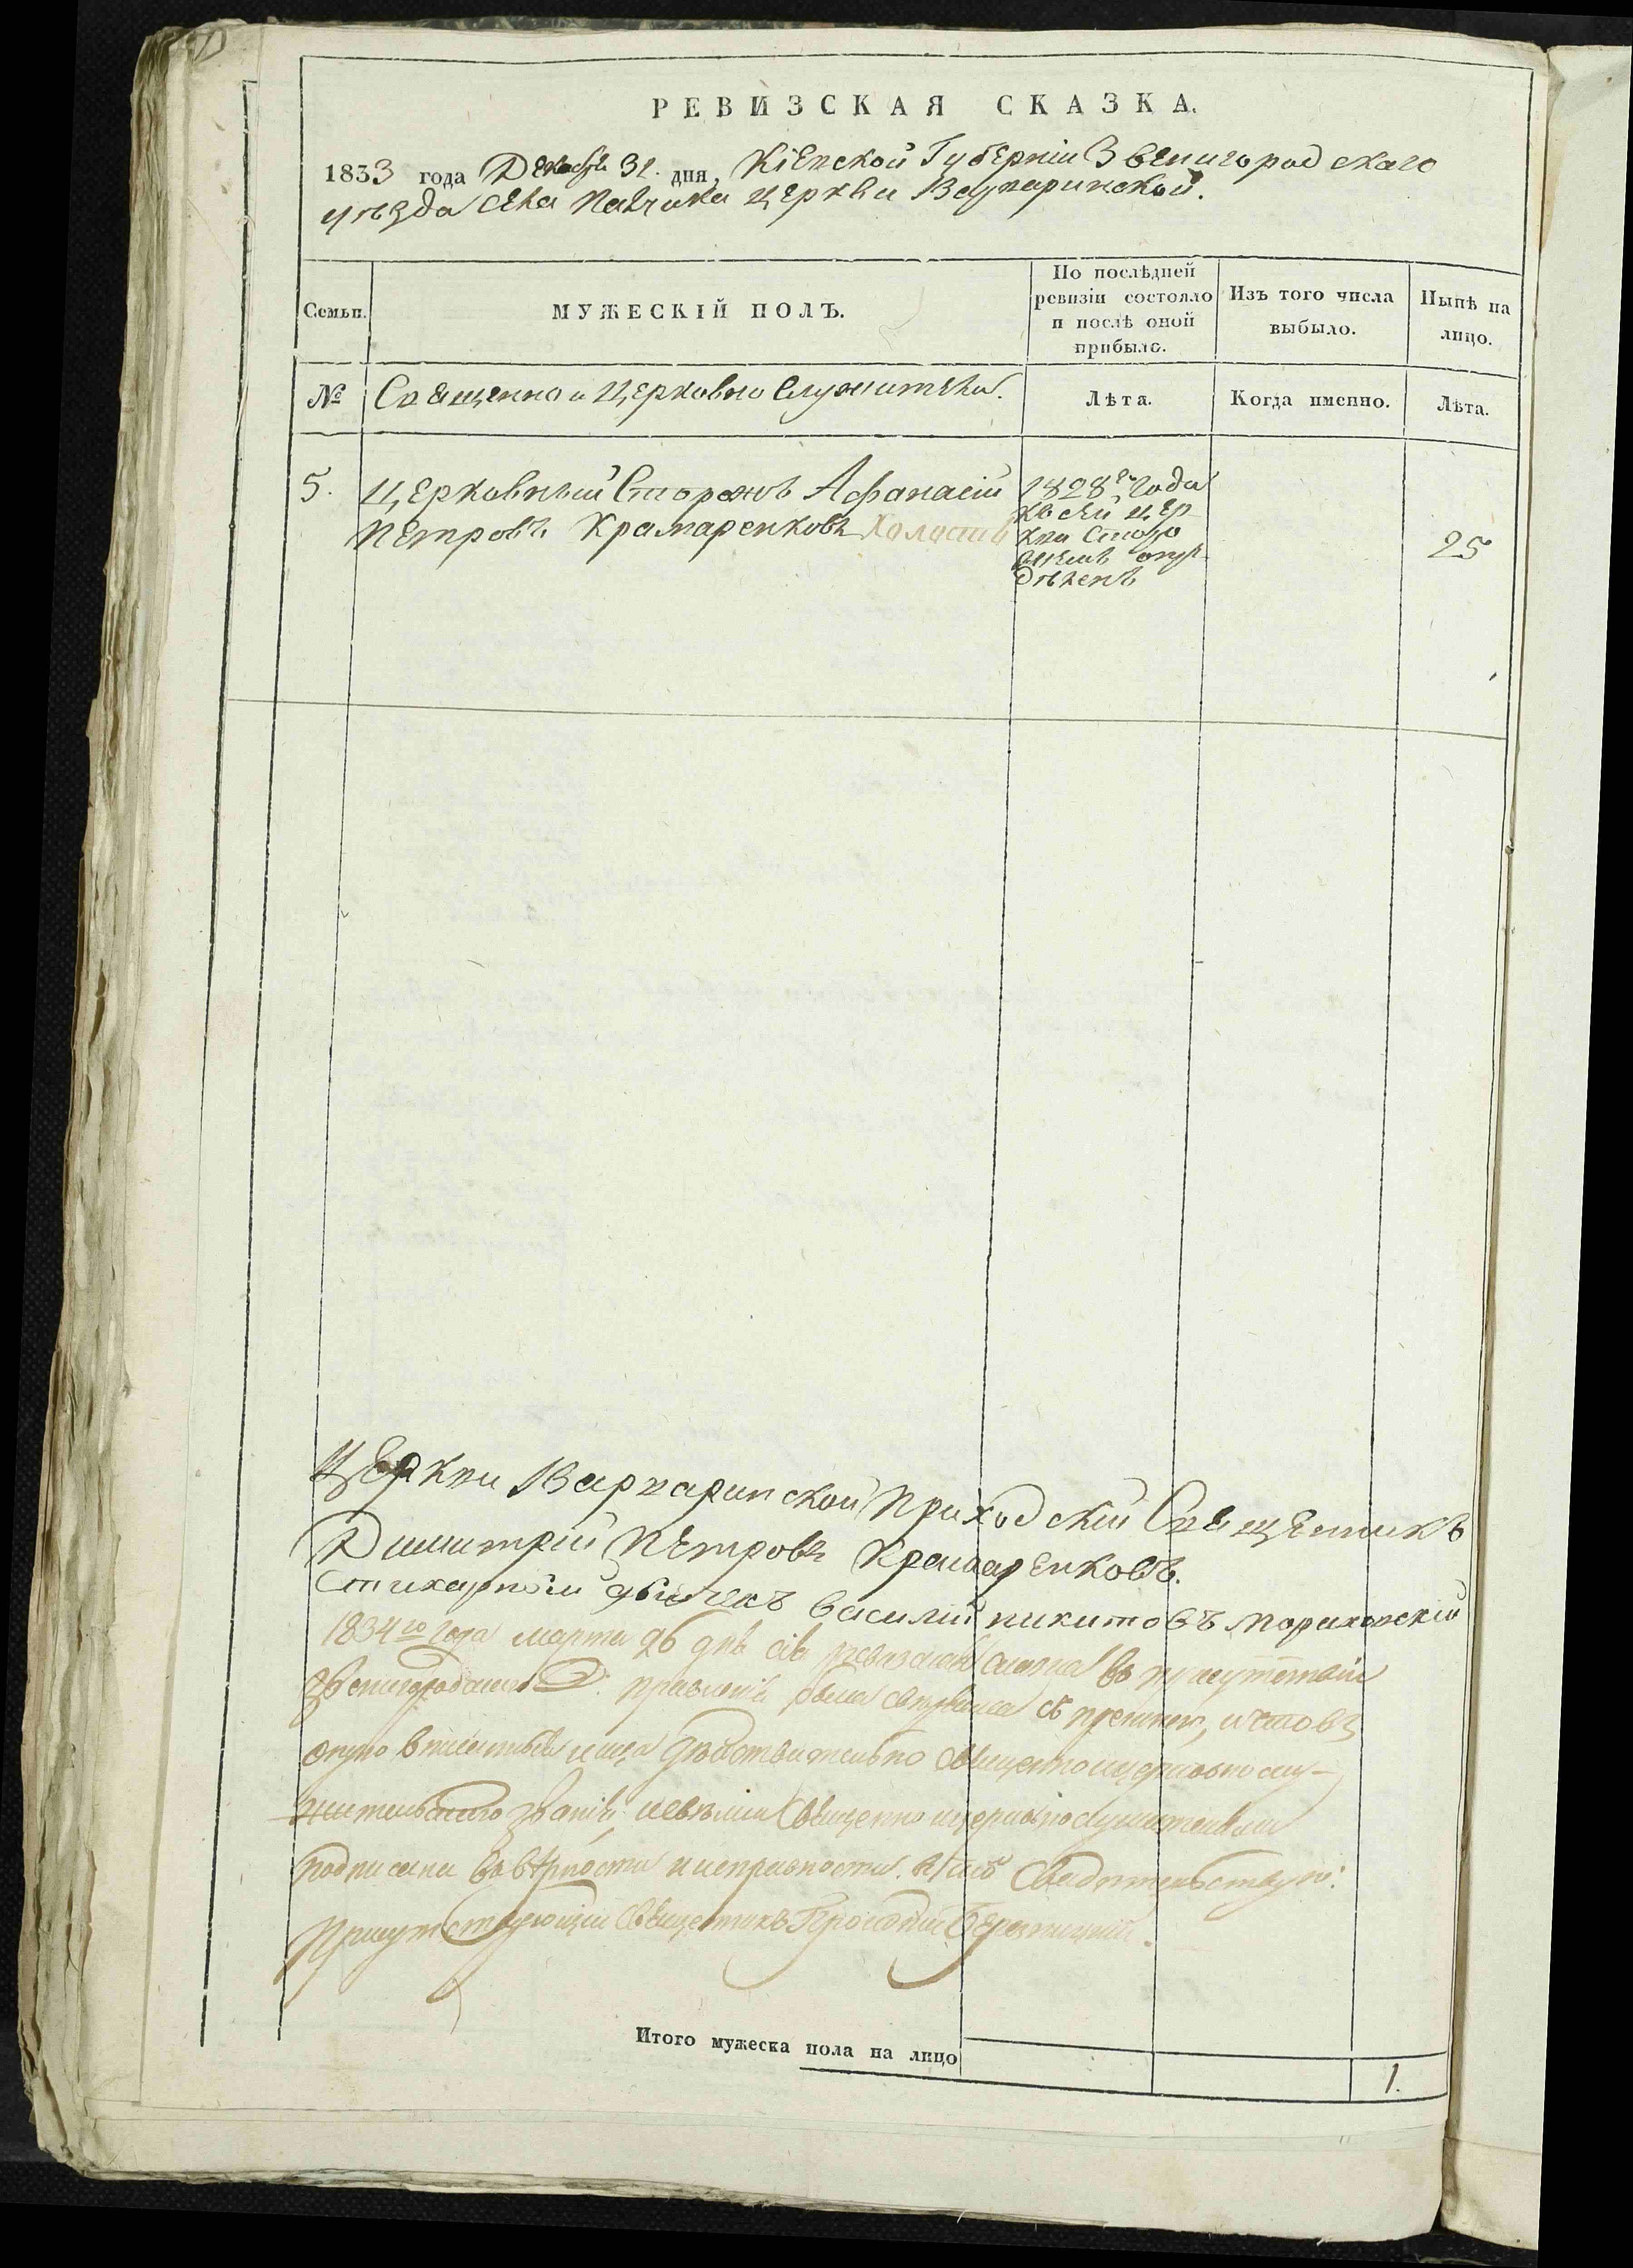 РЕВИЗСКАЯ СКАЗКА.
1833 года Декабря 31. дня, Кіевской Губерніи Звенигородскаго
уѣзда села Павловки церкви Варваринской.
Семьи.
МУЖЕСКІЙ ПОЛЪ.
По послѣдней ревизіи состояло и послѣ оной прибыло.
Изъ того числа выбыло.
Нынѣ на лицо.
№
Священно и Церковно Служители.
Лѣта.
Когда именно.
Лѣта.
5.
Церковный Сторожъ Афанасій
Петровъ Крамаренковъ Холостъ
1828го года
къ сей цер
кви Сторо
жемъ опре
дѣленъ
25
Церкви Варваринской Приходскій Священникъ
Димитрій Петровъ Крамаренковъ.
Стихарный дьячекъ василій никитовъ
1834го года марта 26 дня сія ревизская сказка въ присутствіи
Звенигородскаго Д. правленія была свѣряема съ прежнею, и что въ
оную вписанныя лица дѣйствительно священно и церковно слу-
жительскаго званія, и всѣми священно и церковнослужителями
подписана въ вѣрности и исправности. въ томъ Свидѣтельствую:
Присутствующій Священникъ
Итого мужеска пола на лицо
1.